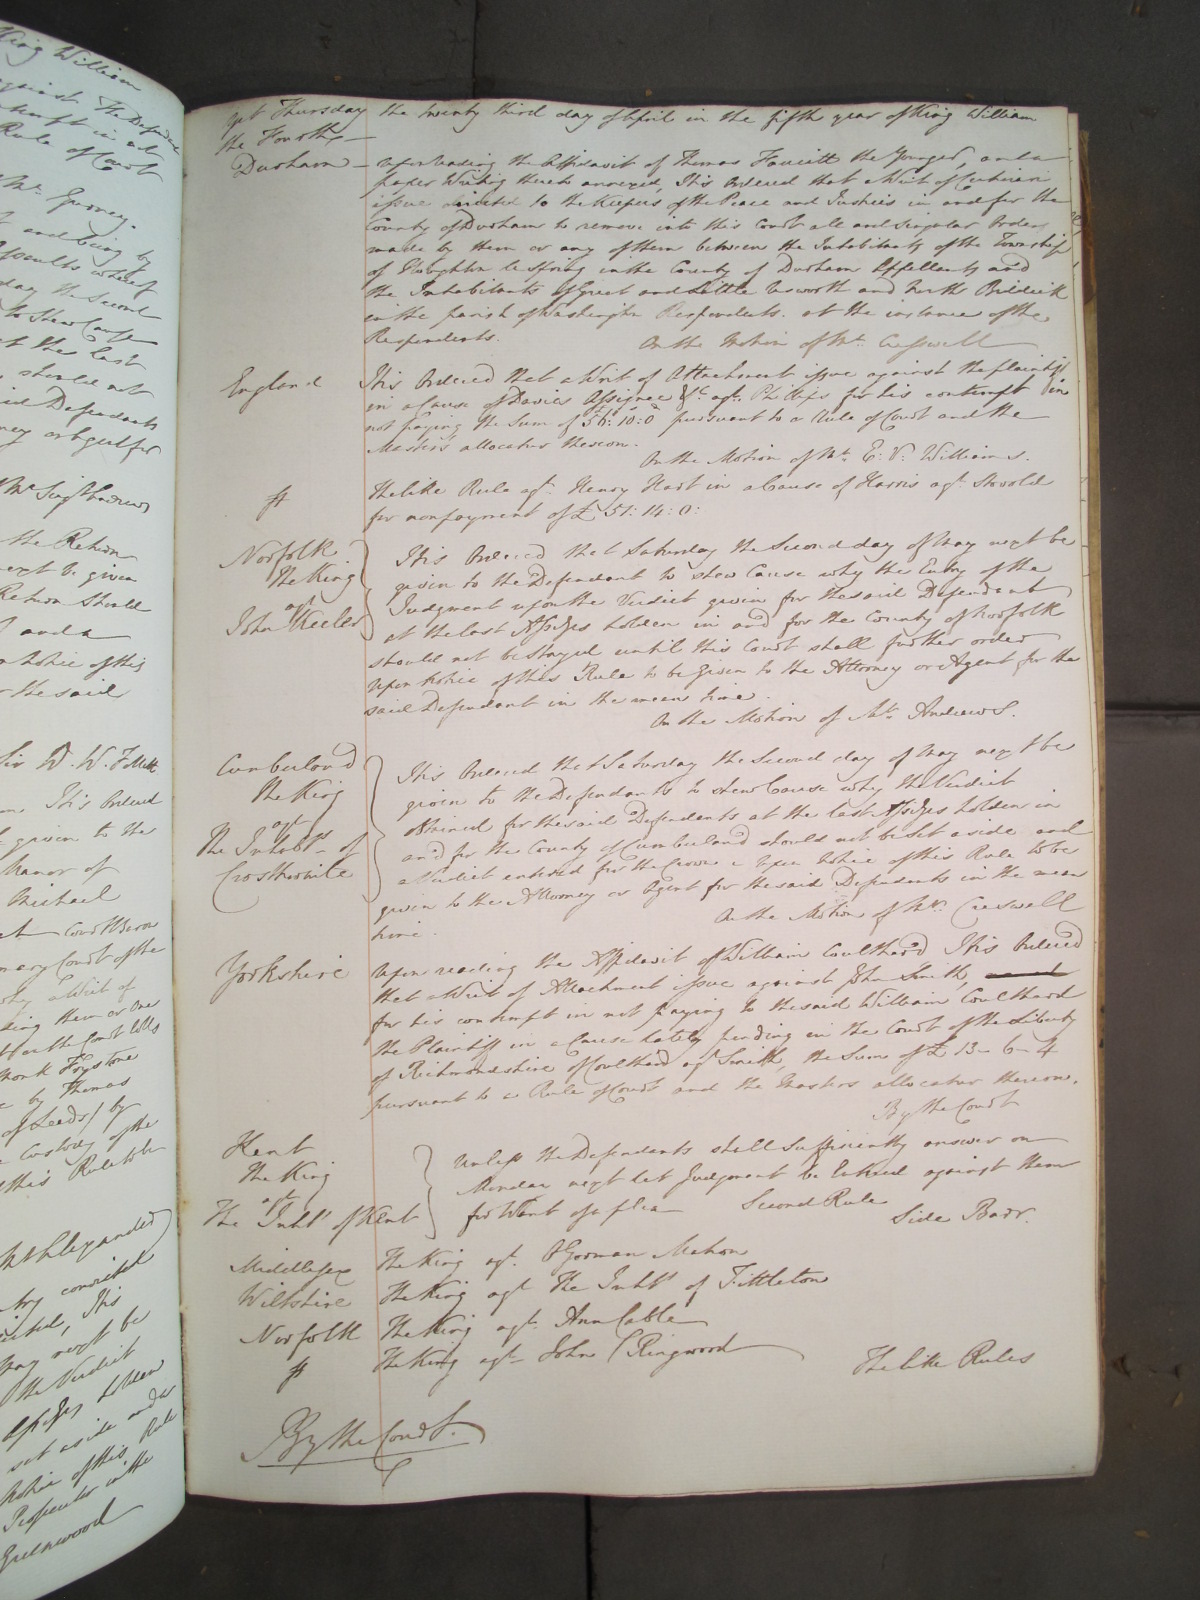 King William
against the Defendants
Rule of Court
Mr. Gurney.
and being by
day the Second
to Shew Cause
at the last
should not
said Defendants
Mr. Serjt. Andrews
the Return
next be given
Return should
and a
notice of this
the said
Sir W. W. Follett
It is Ordered
given to the
Manor of
Michael
Court Baron
Customary Court of the
a Writ of
them or one
the Court Rolls
by Thomas
of Leeds) by
Custody of the
this Rule to be
Mr. Alexander
convicted
It is
May next be
the Verdict
Assizes holden
set aside and a
Notice of this Rule
Prosecutor in the
Greenwood
Yet Thursday the twenty third day of April in the fifth year of King William
the Fourth
Durham Upon reading the Affidavit of Thomas Fawcett the Younger, and a
paper Writing thereto annexed, It is Ordered that a Writ of Certiorari
issue directed to the Keepers of the Peace and Justices in and for the
County of Durham to remove into this Court all and singular Orders
made by them or any of them between the Inhabitants of the Township
of Houghton le Spring in the County of Durham Appellants and
the Inhabitants of Great and Little Usworth and North Biddick
in the parish of Washington Respondents. at the instance of the
Respondents. On the Motion of Mr. Cresswell
England It is Ordered that a Writ of Attachment issue against the plaintiff
in a Cause of Davies Assignee &c. agt. Phillips for his contempt in
not paying the Sum of £56: 10: 0 pursuant to a Rule of Court and the
Master's allocatur thereon.
On the Motion of Mr. E. V. Williams.
The like Rule agt. Henry Hart in a Cause of Harris agt. Stovold
for nonpayment of £ 51: 14: 0:
Norfolk It is Ordered that Saturday the Second day of May next be
The King given to the Defendant to shew Cause why the Entry of the
agt. Judgment upon the Verdict given for the said Defendant
John Keeler at the last Assizes holden in and for the County of Norfolk
should not be stayed until this Court shall further order
Upon Notice of this Rule to be given to the Attorney or Agent for the
said Defendant in the mean time.
On the Motion of Mr. Andrews.
Cumberland It is Ordered that Saturday the Second day of May next be
The King given to the Defendants to shew Cause why the Verdict
agt. obtained for the said Defendants at the last Assizes holden in
The Inhabts. of and for the County of Cumberland should not be set aside and
Crosthwaite a Verdict entered for the Crown Upon Notice of this Rule to be
given to the Attorney or Agent for the said Defendants in the mean
time. On the Motion of Mr. Cresswell
Yorkshire Upon reading the Affidavit of William Coulthard It is Ordered
that a Writ of Attachment issue against John Smith,
for his contempt in not paying to the said William Coulthard
the Plaintiff in a Cause lately pending in the Court of the Liberty
of Richmondshire of Coulthard agt. Smith, the Sum of £ 13-6-4
pursuant to a Rule of Court and the Masters allocatur thereon.
By the Court
Kent Unless the Defendants shall sufficiently answer on
The King Monday next let Judgment be Entered against them
agt. for Want of a plea Second Rule
The Inhts. of Kent Side Barr.
Middlesex The King agt. O'Gorman Mahon
Wiltshire The King agt. The Inhts. of Fittleton
Norfolk The King agt. Ann Cable
The King agt. John Ringwood The like Rules
By the Court.